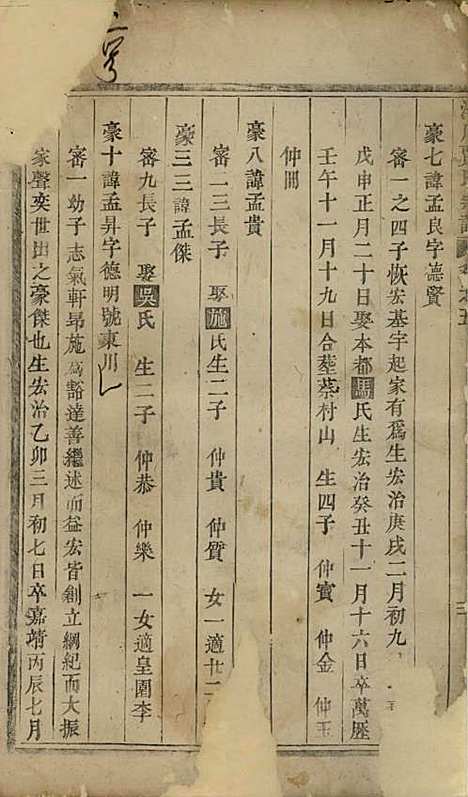 豪七諱孟良字德賢
審一之四子恢宏基宇起家有爲生宏治庚戌二月初九
戊申正月二十日娶本都馬氏生宏治癸丑十一月十六日卒萬歷
壬午十一月十九日合塟蔡村山 生四子 仲賓 仲金 仲玉
仲開
豪八諱孟貴
審二三長子 娶施氏生二子 仲貴 仲質 女一適廿二
豪三三諱孟傑
審九長子 娶吳氏 生二子 仲恭 仲樂 一女適皇圍李
豪十諱孟昇字德明號東川
審一幼子志氣軒昂施爲豁達善繼述而益宏皆創立綱紀而大振
家聲奕世出之豪傑也生宏治乙卯三月初七日卒嘉靖丙辰七月